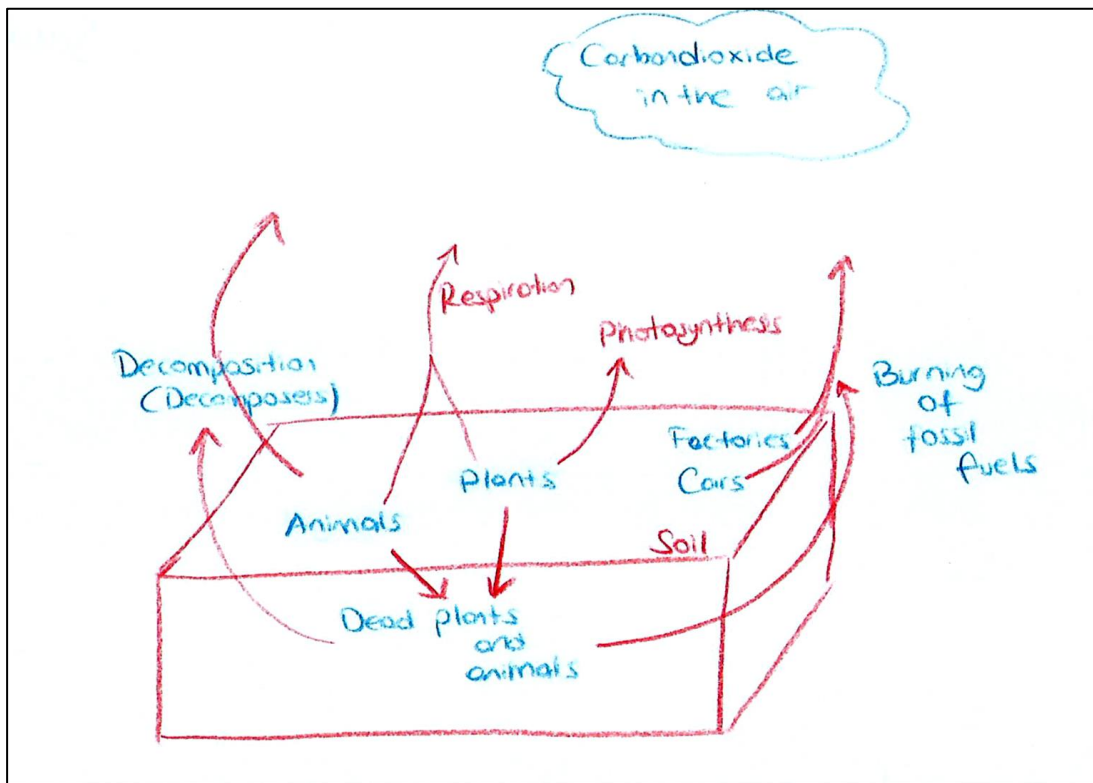 Carbondioxide
in the air
Respiration
Photosynthesis
Decomposition
(Decomposers)
Burning
of
fossil
fuels
Factories
Cars
Plants
Animals
Soil
Dead plants
and
animals